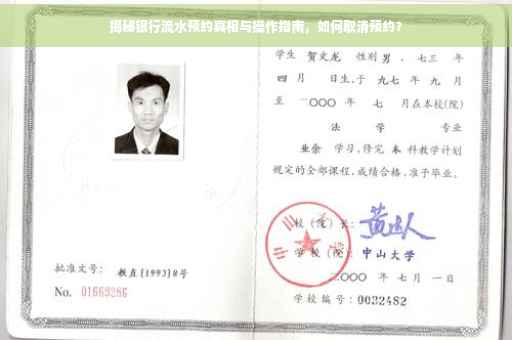 揭秘银行流水预约真相与操作指南，如何取消预约？
学生 贺文龙 性别 男 、七三 年
四 月 日生,于 九七 年 九 月
至 二〇〇〇 年 七 月在本校(院)
法 学 专业
业余 学习,修完 本 科教学计划
规定的全部课程,成绩合格,准予毕业。
校(院)长:
学校(院): 中山大学
二〇〇〇 年 七 月 一 日
学校编号: 0032482
批准文号: 教直[1993]8号
No. 01669286